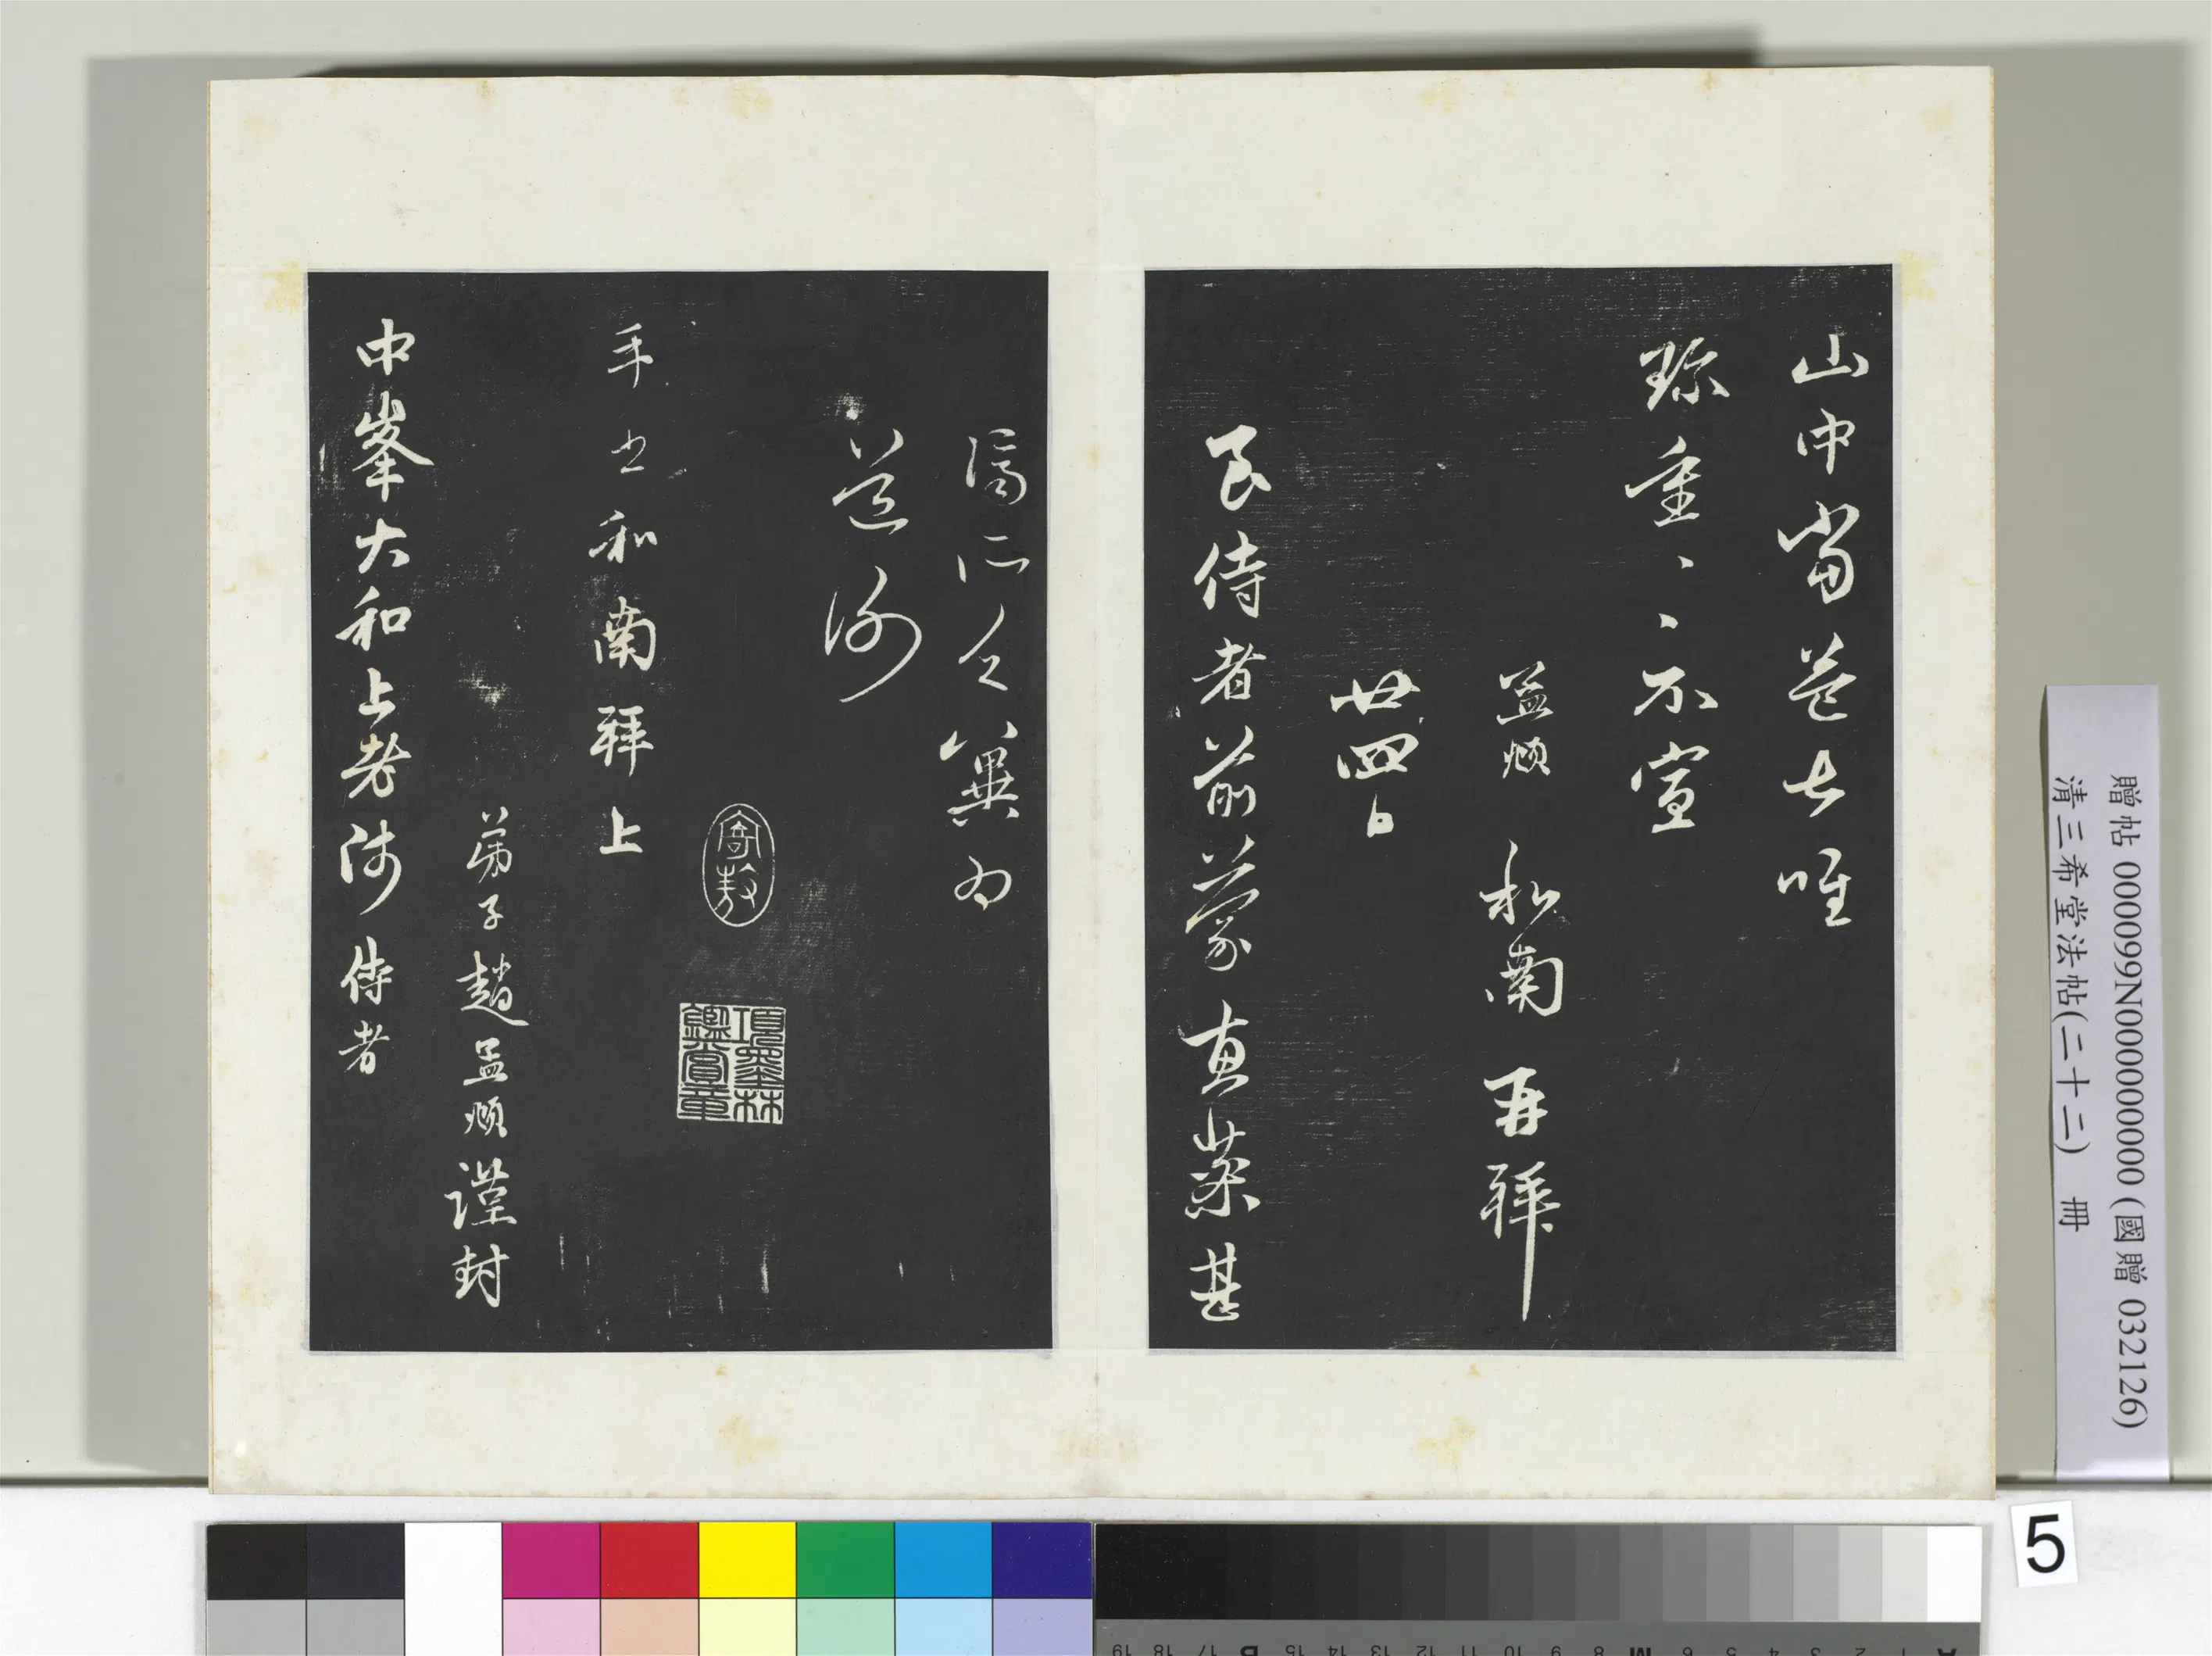 山中當益吉唯
珎重、、不宣
孟頫和南再拜
廿四日
艮侍者前蒙惠茶甚
濟所乏冀為
道謝
手書和南拜上
弟子趙孟頫謹封
中峯大和上老師侍者
寄敖
項墨林鑑賞章
贈帖 000099N000000000 (國贈 032126)
清三希堂法帖(二十二) 冊
5